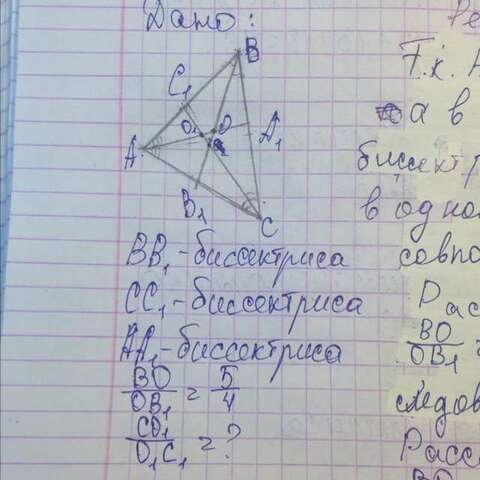 Дано:
B
C₁
O₁ O
A₁
A
B₁
C
BB₁ - биссектриса
CC₁ - биссектриса
AA₁ - биссектриса
BO/OB₁ = 5/4
CO₁/O₁C₁ = ?
Ре
Т.к. А
а в
биссектр
в одно
совпа
Рас
BO/OB₁ =
следов
Расс